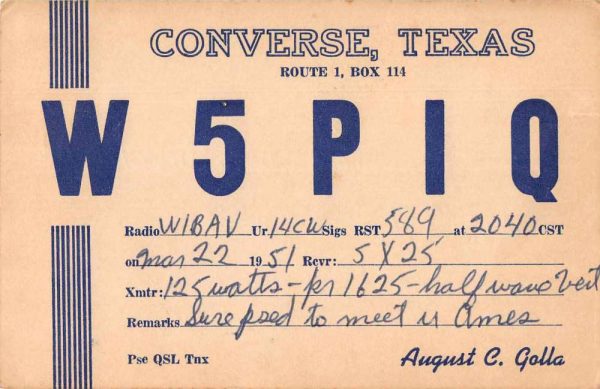 CONVERSE, TEXAS
ROUTE 1, BOX 114
W5PIQ
Radio W1BAV Ur 14CW Sigs RST 589 at 2040 CST
on Mar 22 1951 Rcvr: SX25
Xmtr: 125 watts - pr 1625 - half wave Vert
Remarks Sure psed to meet u Ames
Pse QSL Tnx
August C. Golla